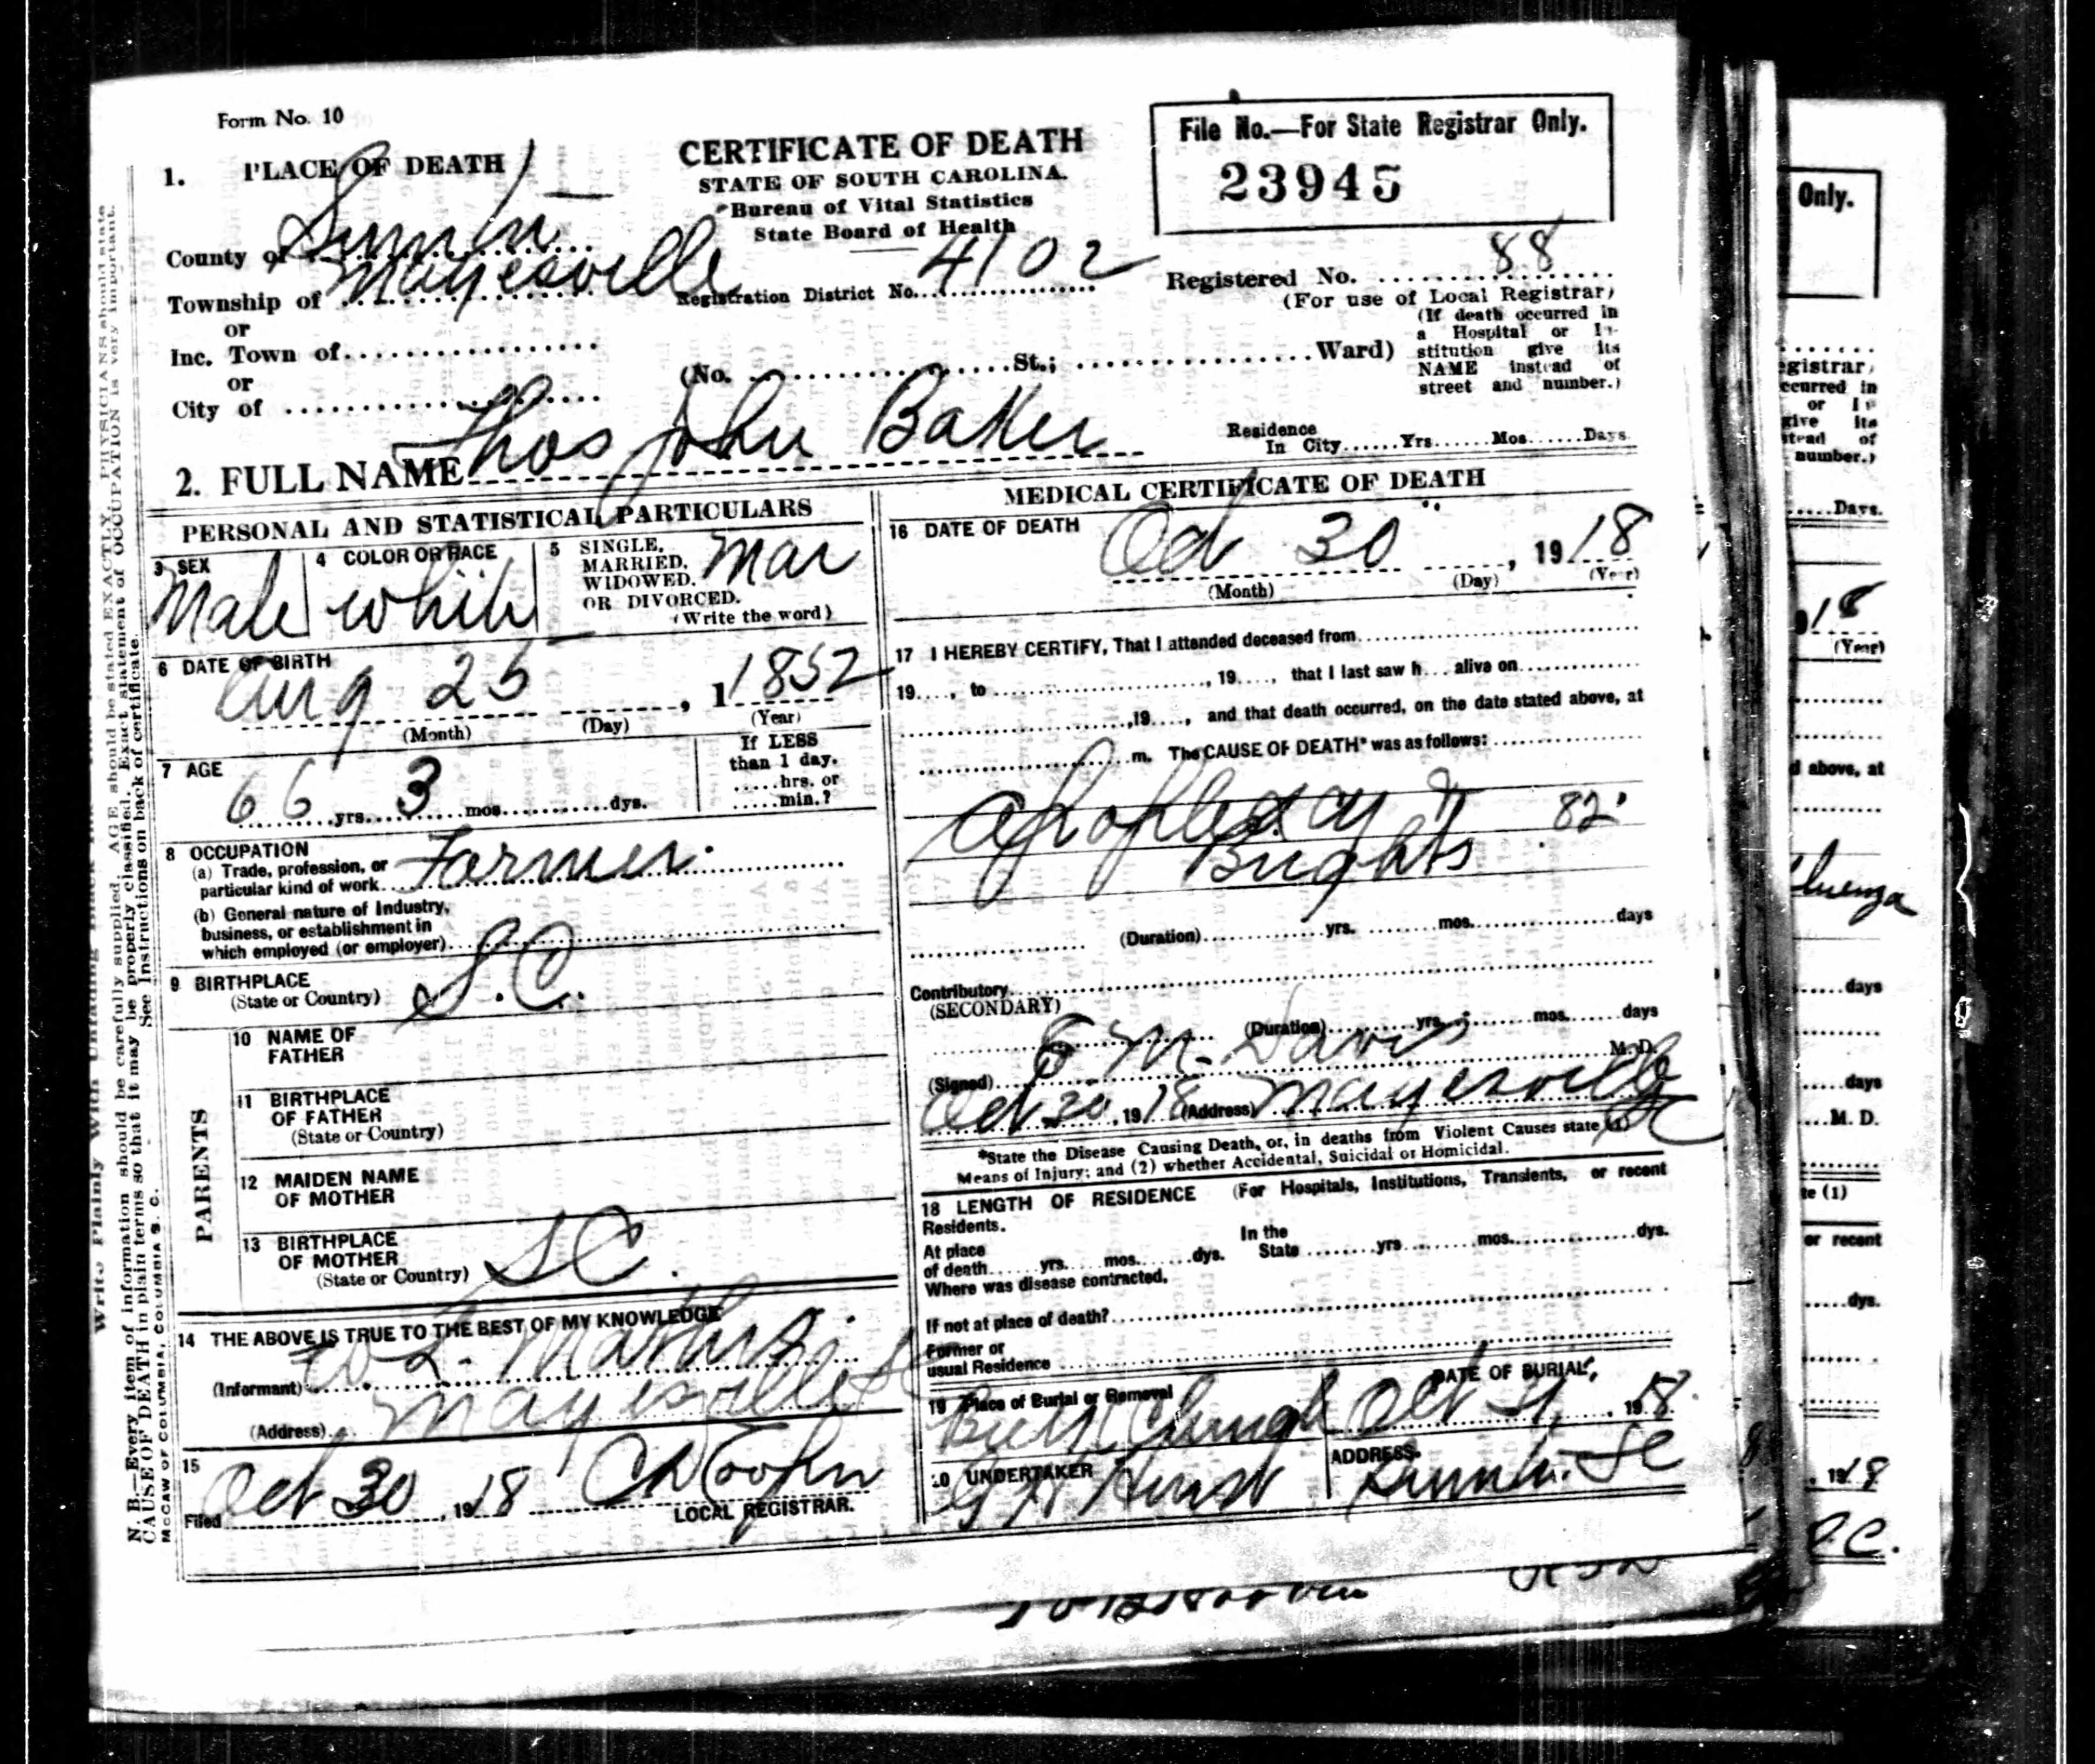 Form No. 10
1. PLACE OF DEATH
CERTIFICATE OF DEATH
STATE OF SOUTH CAROLINA.
Bureau of Vital Statistics
State Board of Health
File No.—For State Registrar Only.
23945
County of Sumter
Township of Mayesville
Registration District No. 4102
Registered No. 88
(For use of Local Registrar)
or
Inc. Town of
or
City of
(No. St.; Ward)
(If death occurred in
a Hospital or In-
stitution give its
NAME instead of
street and number.)
2. FULL NAME Thos John Baker
Residence
In City Yrs Mos Days
PERSONAL AND STATISTICAL PARTICULARS
3 SEX
Male
4 COLOR OR RACE
White
5 SINGLE,
MARRIED,
WIDOWED,
OR DIVORCED.
(Write the word)
Mar
6 DATE OF BIRTH
Aug 25, 1 1852
(Month) (Day) (Year)
7 AGE
66 yrs. 3 mos. dys.
If LESS
than 1 day,
hrs. or
min.?
8 OCCUPATION
(a) Trade, profession, or
particular kind of work Farmer
(b) General nature of Industry,
business, or establishment in
which employed (or employer)
9 BIRTHPLACE
(State or Country) S.C.
PARENTS
10 NAME OF
FATHER
11 BIRTHPLACE
OF FATHER
(State or Country)
12 MAIDEN NAME
OF MOTHER
13 BIRTHPLACE
OF MOTHER
(State or Country) SC.
14 THE ABOVE IS TRUE TO THE BEST OF MY KNOWLEDGE
(Informant) W. L. Mathis
(Address) Mayesville SC
15
Filed Oct 30, 1918
LOCAL REGISTRAR.
MEDICAL CERTIFICATE OF DEATH
16 DATE OF DEATH
Oct 30, 1918
(Month) (Day) (Year)
17 I HEREBY CERTIFY, That I attended deceased from
19, to, 19, that I last saw h alive on
,19, and that death occurred, on the date stated above, at
m. The CAUSE OF DEATH* was as follows:
Apoplexy 82
Brights
(Duration) yrs. mos. days
Contributory
(SECONDARY)
(Duration) yrs. mos. days
(Signed) M. Davis M. D.
Oct 30, 1918 (Address) Mayesville SC
*State the Disease Causing Death, or, in deaths from Violent Causes state (1)
Means of Injury; and (2) whether Accidental, Suicidal or Homicidal.
18 LENGTH OF RESIDENCE (For Hospitals, Institutions, Transients, or recent
Residents.
At place
of death yrs. mos. dys.
In the
State yrs mos. dys.
Where was disease contracted,
If not at place of death?
Former or
usual Residence
19 Place of Burial or Removal
Church
DATE OF BURIAL
Oct 31, 1918.
20 UNDERTAKER
Hurst
ADDRESS
Sumter SC
N. B.—Every item of information should be carefully supplied. AGE should be stated EXACTLY. PHYSICIANS should state
CAUSE OF DEATH in plain terms so that it may be properly classified. Exact statement of OCCUPATION is very important.
See Instructions on back of certificate.
McCAW OF COLUMBIA, COLUMBIA S. C.
Only.
egistrar)
ccurred in
or In
give its
stead of
number.)
Days.
918
(Year)
d above, at
days
days
M. D.
te (1)
or recent
dys.
1918
S.C.